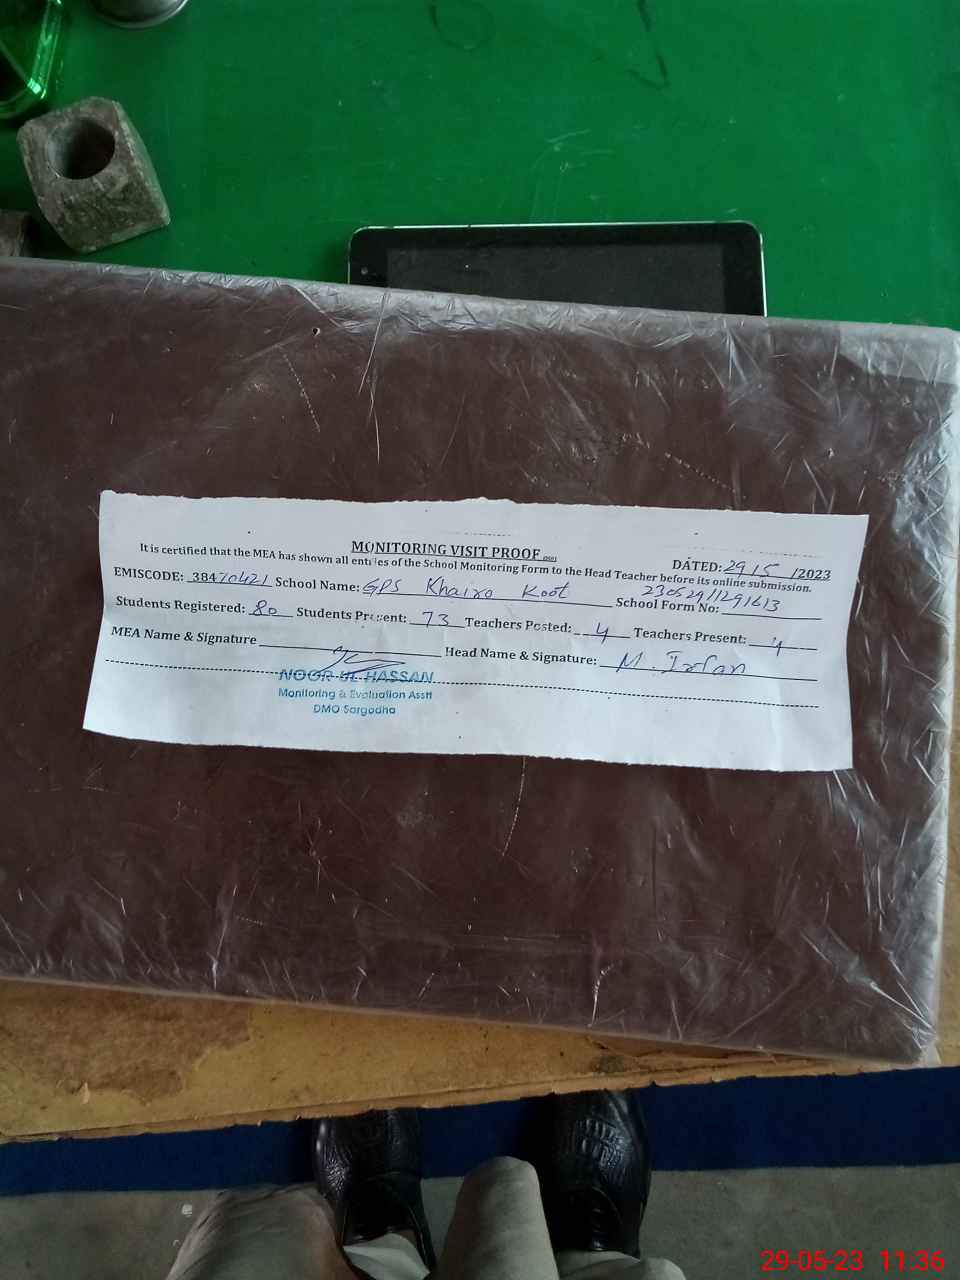 MONITORING VISIT PROOF
DATED: 29/5 /2023
It is certified that the MEA has shown all entries of the School Monitoring Form to the Head Teacher before its online submission.
EMISCODE: 38470421 School Name: GPS Khairo Koot School Form No: 23052911291613
Students Registered: 80 Students Present: 73 Teachers Posted: 4 Teachers Present: 4
MEA Name & Signature Head Name & Signature: M. Irfan
NOOR UL HASSAN
Monitoring & Evaluation Asstt
DMO Sargodha
29-05-23 11:36